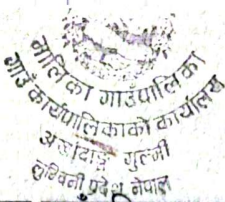 मालिका गाउँपालिका
गाउँ कार्यपालिकाको कार्यालय
अर्खादाङ्ग गुल्मी
लुम्बिनी प्रदेश नेपाल